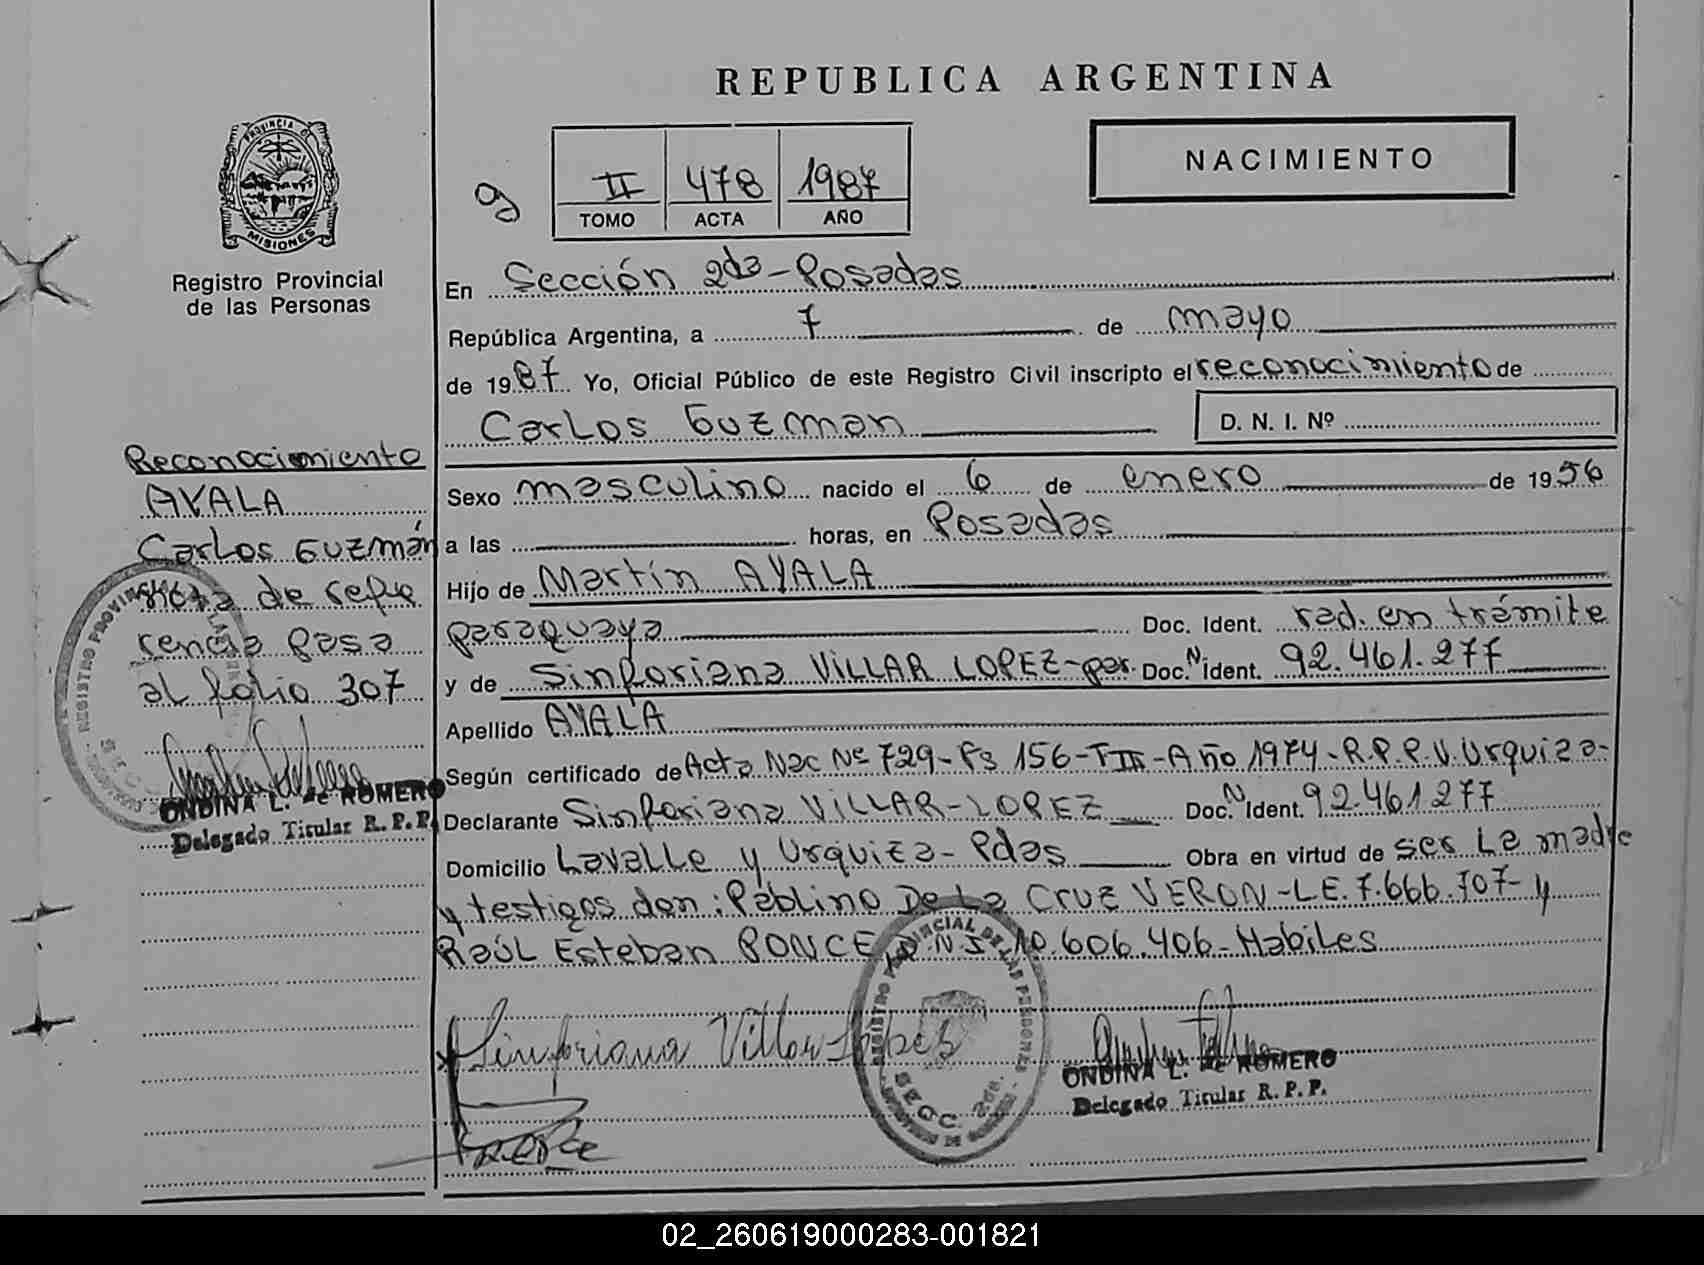 REPUBLICA ARGENTINA
NACIMIENTO
9
II 478 1987
TOMO ACTA AÑO
PROVINCIA DE
MISIONES
Registro Provincial
de las Personas
En Sección 2da - Posadas
República Argentina, a 7 de mayo
de 1987 Yo, Oficial Público de este Registro Civil inscripto el reconocimiento de
Carlos Guzman D. N. I. Nº
Sexo masculino nacido el 6 de enero de 1956
a las horas, en Posadas
Hijo de Martín AYALA
paraguaya Doc. Ident. rad. en trámite
y de Sinforiana VILLAR LOPEZ - par. Doc. N Ident. 92.461.277
Apellido AYALA
Según certificado de Acta Nac Nº 729 - Fs 156 - T III - Año 1974 - R.P.P. V. Urquiza -
Declarante Sinforiana VILLAR - LOPEZ Doc. N Ident. 92.461.277
Domicilio Lavalle y Urquiza - Pdas Obra en virtud de ser la madre
y testigos don: Pablino De La Cruz VERON - LE. 7.666.707 - y
Raúl Esteban PONCE D.N.I. 10.606.406 - Habiles
Reconocimiento
AYALA
Carlos Guzmán
Nota de refe
rencia pasa
al folio 307
ONDINA L. de ROMERO
Delegado Titular R. P. P.
Sinforiana Villar Lopez
REGISTRO PROVINCIAL DE LAS PERSONAS
SECC. 2da.
ONDINA L. de ROMERO
Delegado Titular R. P. P.
02_260619000283-001821